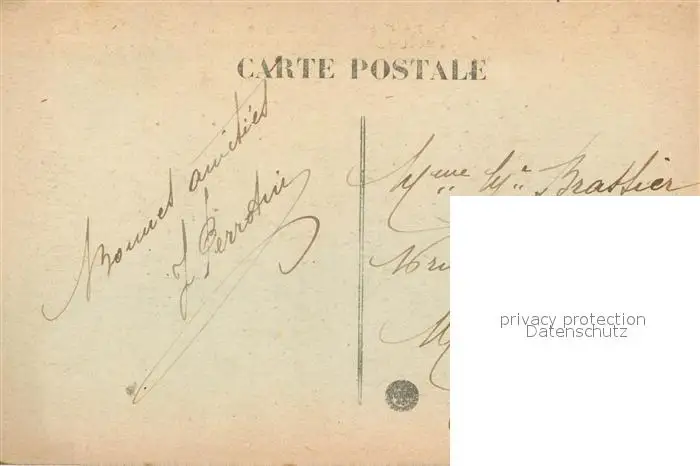 CARTE POSTALE
Bonnes amitiés
J. Perrotin
Mme Mr Brassier
privacy protection
Datenschutz